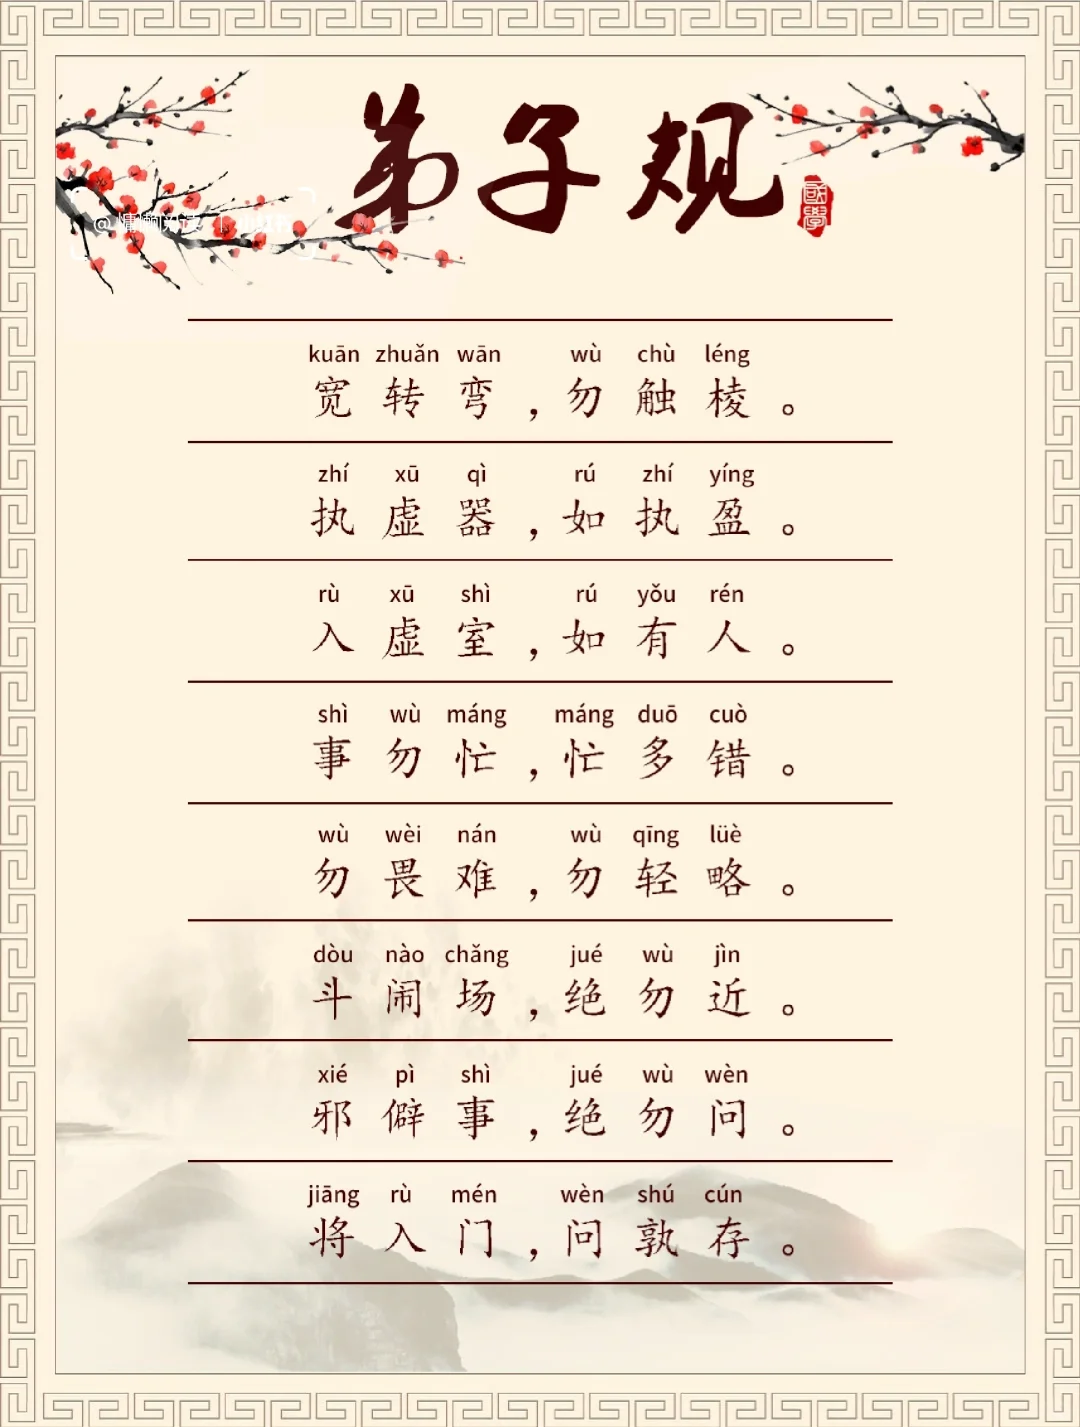 弟子规
國學
kuān zhuǎn wān wù chù léng
宽转弯，勿触棱。
zhí xū qì rú zhí yíng
执虚器，如执盈。
rù xū shì rú yǒu rén
入虚室，如有人。
shì wù máng máng duō cuò
事勿忙，忙多错。
wù wèi nán wù qīng lüè
勿畏难，勿轻略。
dòu nào chǎng jué wù jìn
斗闹场，绝勿近。
xié pì shì jué wù wèn
邪僻事，绝勿问。
jiāng rù mén wèn shú cún
将入门，问孰存。